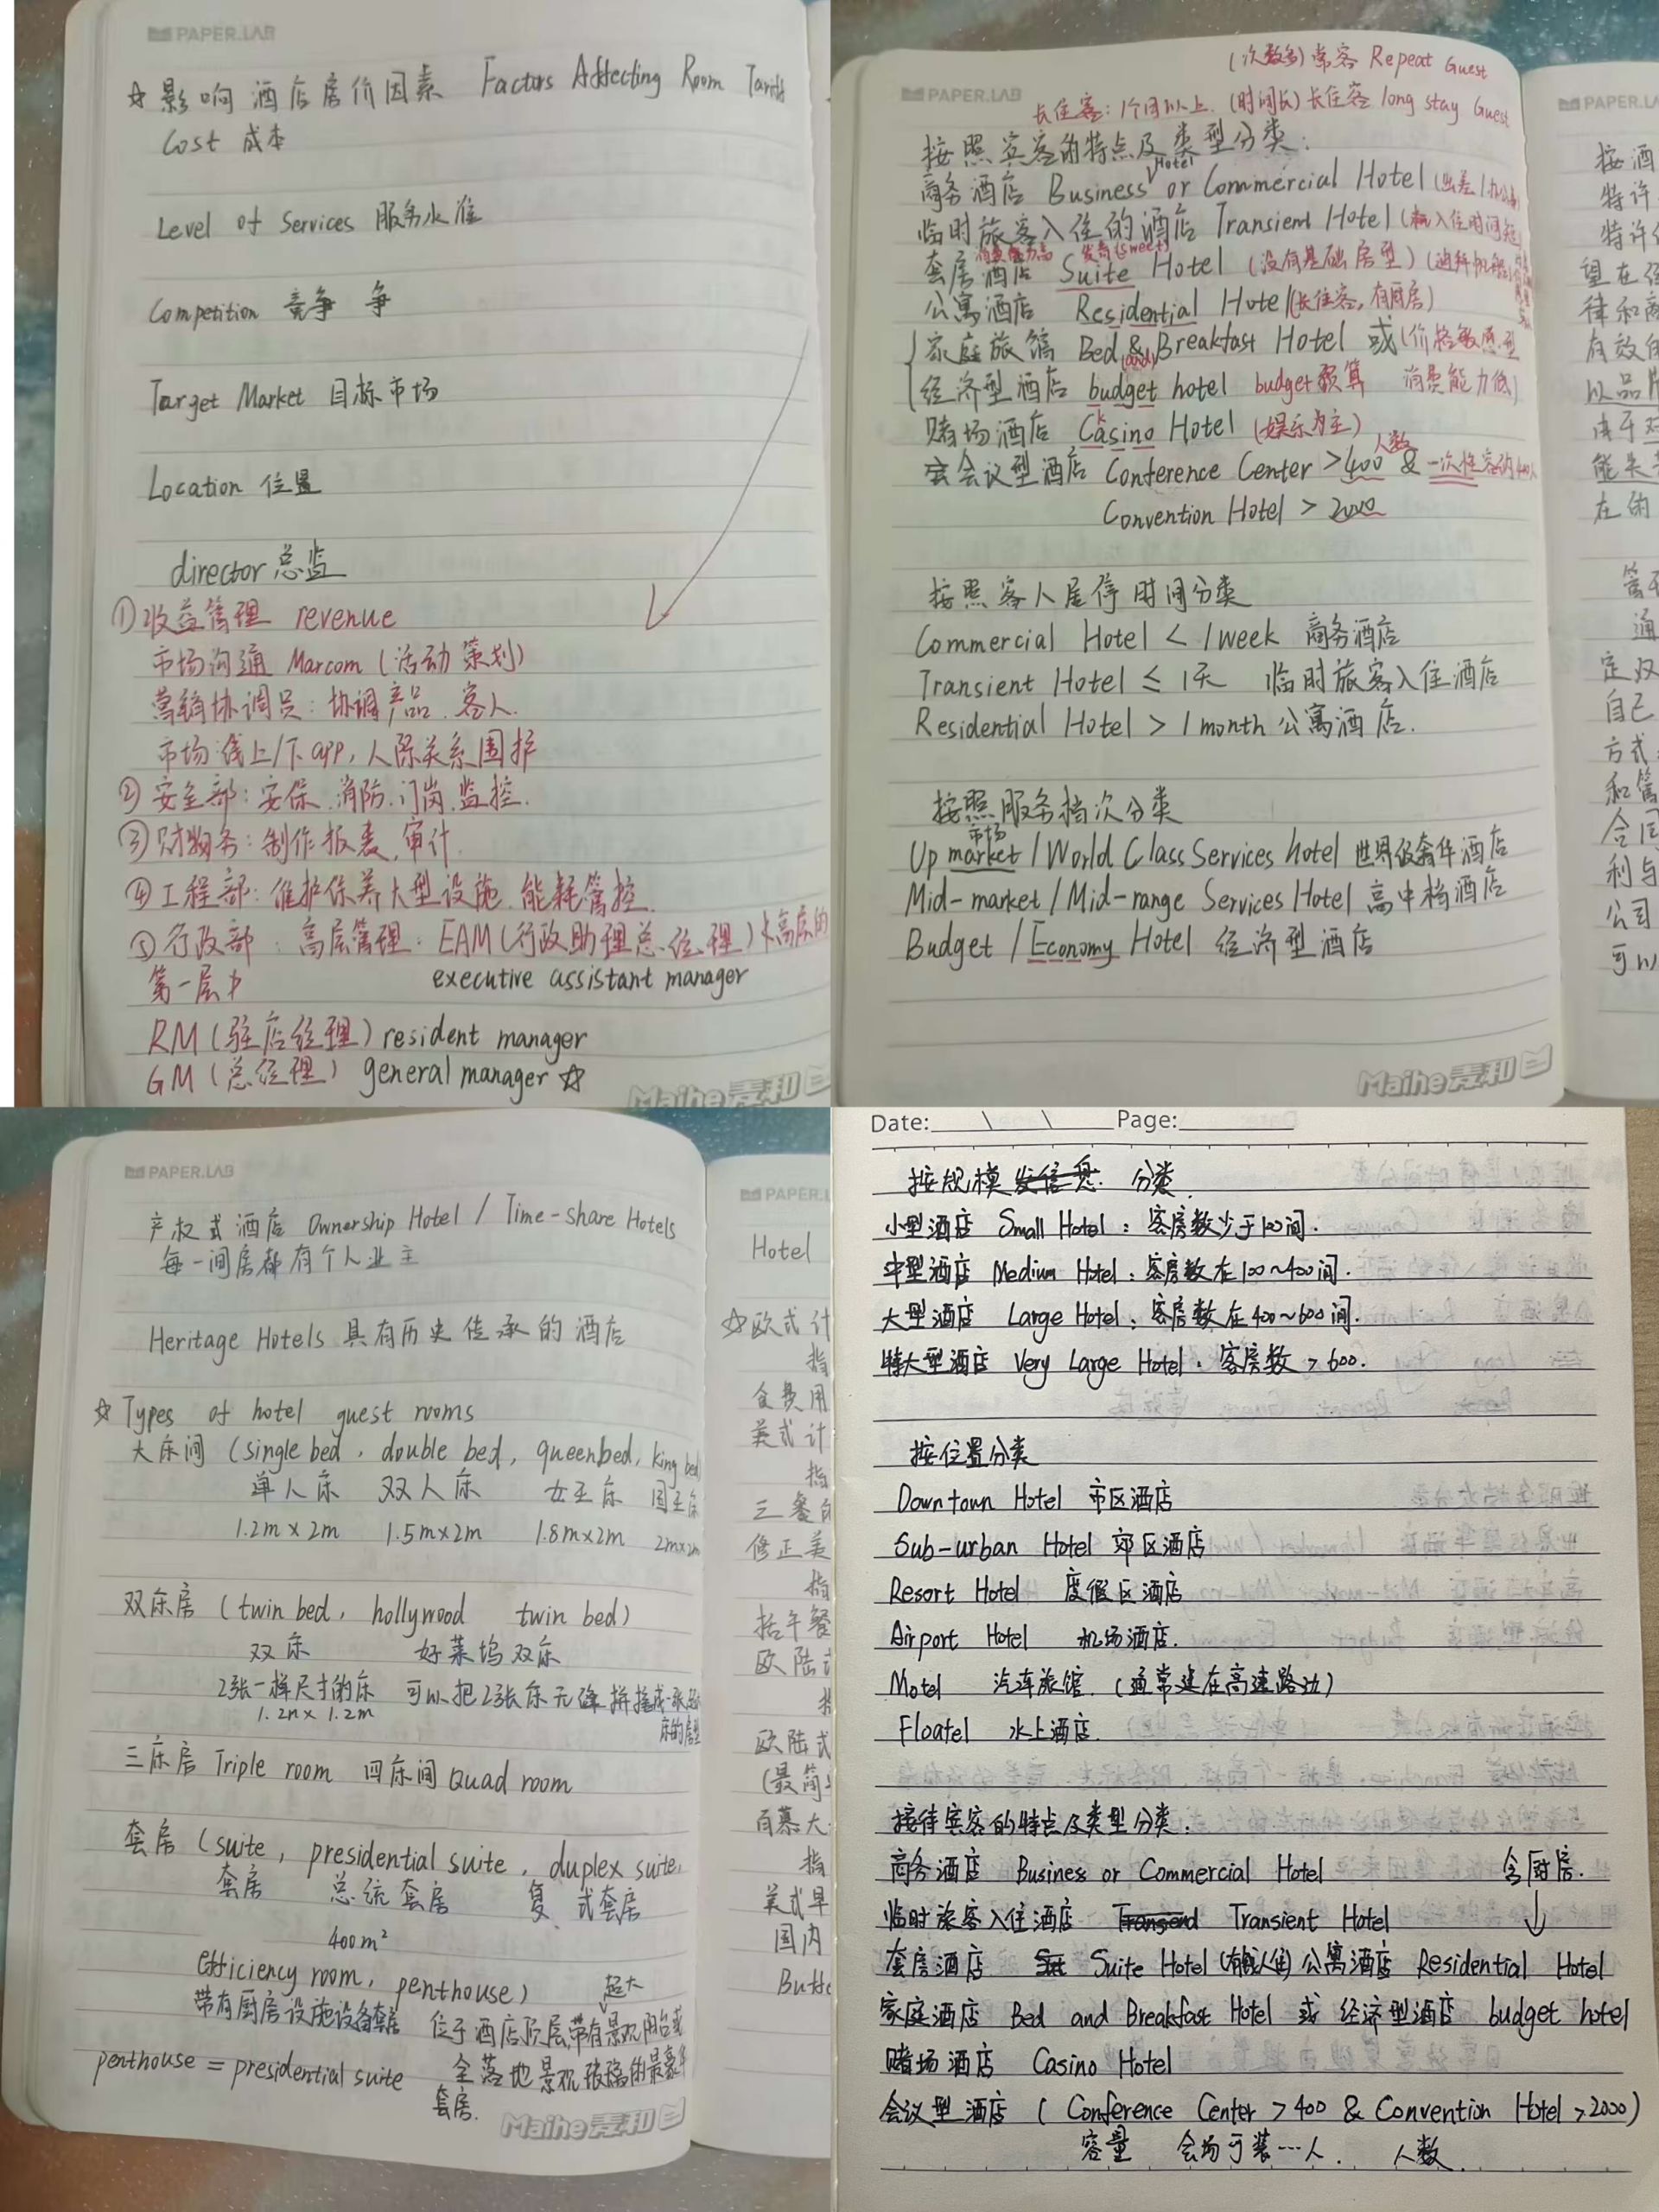 PAPER.LAB
☆影响酒店房价因素 Factors Affecting Room Tariff
Cost 成本
Level of Services 服务水准
Competition 竞争 争
Target Market 目标市场
Location 位置
director 总监
①收益管理 revenue
市场沟通 Marcom (活动策划)
营销协调员：协调产品、客人.
市场：线上/下app, 人际关系围护
②安全部：安保、消防、门岗、监控.
③财务：制作报表、审计.
④工程部：维护保养大型设施、能耗管控.
⑤行政部：高层管理：EAM(行政助理总经理)
第一层
executive assistant manager
RM (驻店经理) resident manager
GM (总经理) general manager ☆
Maihe麦和
(次数多) 常客 Repeat Guest
PAPER.LAB
长住客：1个月以上. (时间长) 长住客 long stay Guest
按照宾客的特点及类型分类：
商务酒店 Business Hotel or Commercial Hotel
临时旅客入住的酒店 Transient Hotel
套房酒店 Suite Hotel (没有基础房型)
公寓酒店 Residential Hotel (长住客, 有厨房)
家庭旅馆 Bed & (and) Breakfast Hotel 或
经济型酒店 budget hotel budget预算 消费能力低)
赌场酒店 Casino Hotel (娱乐为主)
会议型酒店 Conference Center >400 人数 &
Convention Hotel > 2000
按照客人居停时间分类
Commercial Hotel < 1week 商务酒店
Transient Hotel ≤ 1天 临时旅客入住酒店
Residential Hotel > 1 month 公寓酒店.
按照服务档次分类
市场
Up market / World Class Services hotel 世界级奢华酒店
Mid-market / Mid-range Services Hotel 高中档酒店
Budget / Economy Hotel 经济型酒店
Maihe麦和
PAPER.LAB
按酒
特许
特许
望在
律和
有效
以品
由于
能失
在的
管理
通
定双
自己
方式
和管
合同
利与
公司
可以
PAPER.LAB
产权式酒店 Ownership Hotel / Time-share Hotels
每一间房都有个人业主
Heritage Hotels 具有历史传承的酒店
☆Types of hotel guest rooms
大床间 (single bed, double bed, queenbed, king bed
单人床 双人床 女王床 国王床
1.2m×2m 1.5m×2m 1.8m×2m 2m×2m
双床房 (twin bed, hollywood twin bed)
双床 好莱坞双床
2张一样尺寸的床 可以把2张床无缝拼接成一张
1.2m × 1.2m 床的房型
三床房 Triple room 四床间 Quad room
套房 (suite, presidential suite, duplex suite,
套房 总统套房 复式套房
400m²
efficiency room, penthouse) 超大
带有厨房设施设备套房 位于酒店顶层,带有景观阳台或
penthouse = presidential suite 全落地景观玻璃的最豪华
套房.
Maihe麦和
PAPER.L
Hotel
☆欧式计
指
全费用
美式计
指
三餐的
修正美
指
括午餐
欧陆式
欧陆式
(最简
百慕大
指
美式早
国内
Date: \ \ Page:
按规模 分类.
小型酒店 Small Hotel：客房数少于100间.
中型酒店 Medium Hotel：客房数在100~400间.
大型酒店 Large Hotel：客房数在400~600间.
特大型酒店 Very Large Hotel：客房数 > 600.
按位置分类
Downtown Hotel 市区酒店
Sub-urban Hotel 郊区酒店
Resort Hotel 度假区酒店
Airport Hotel 机场酒店.
Motel 汽车旅馆. (通常建在高速路边)
Floatel 水上酒店.
接待宾客的特点及类型分类.
商务酒店 Business or Commercial Hotel 含厨房.
临时旅客入住酒店 Transient Hotel
套房酒店 Suite Hotel 公寓酒店 Residential Hotel
家庭酒店 Bed and Breakfast Hotel 或 经济型酒店 budget hotel
赌场酒店 Casino Hotel
会议型酒店 ( Conference Center > 400 & Convention Hotel > 2000)
容量 会场可装…人. 人数.